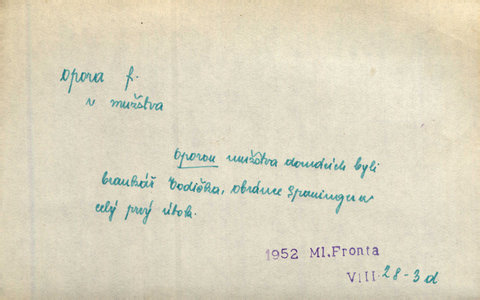 opora f.
v mužstva
Oporou mužstva domácich byli
brankář Vodička, obránce Spaninger a
celý prvý útok.
1952 Ml.Fronta
VIII 28-3 d